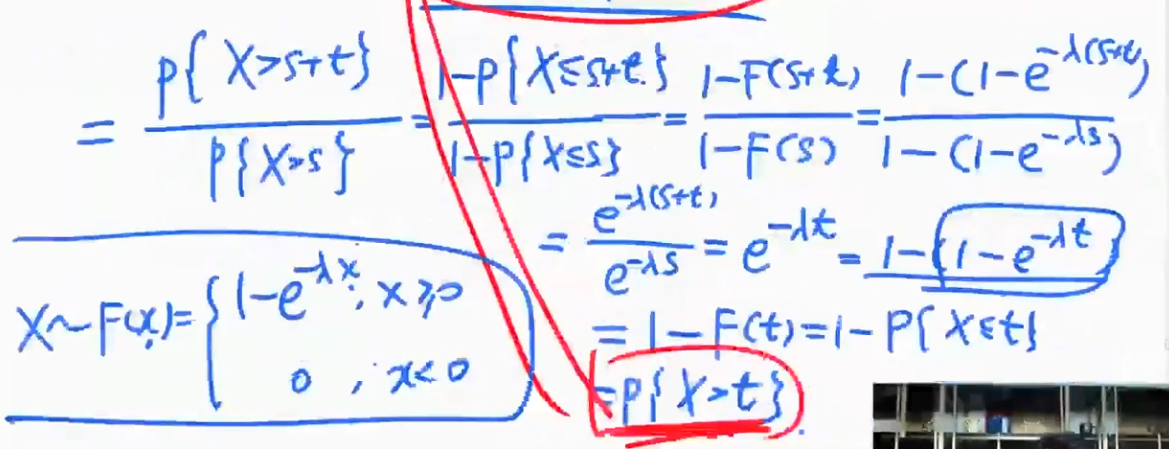 = P{X>s+t} / P{X>s} = 1-P{X≤s+t} / 1-P{X≤s} = 1-F(s+t) / 1-F(s) = 1-(1-e^{-λ(s+t)}) / 1-(1-e^{-λs})
= e^{-λ(s+t)} / e^{-λs} = e^{-λt} = 1-(1-e^{-λt})
X~F(x)= { 1-e^{-λx}, x≥0
0, x<0
= 1-F(t)=1-P{X≤t}
=P{X>t}